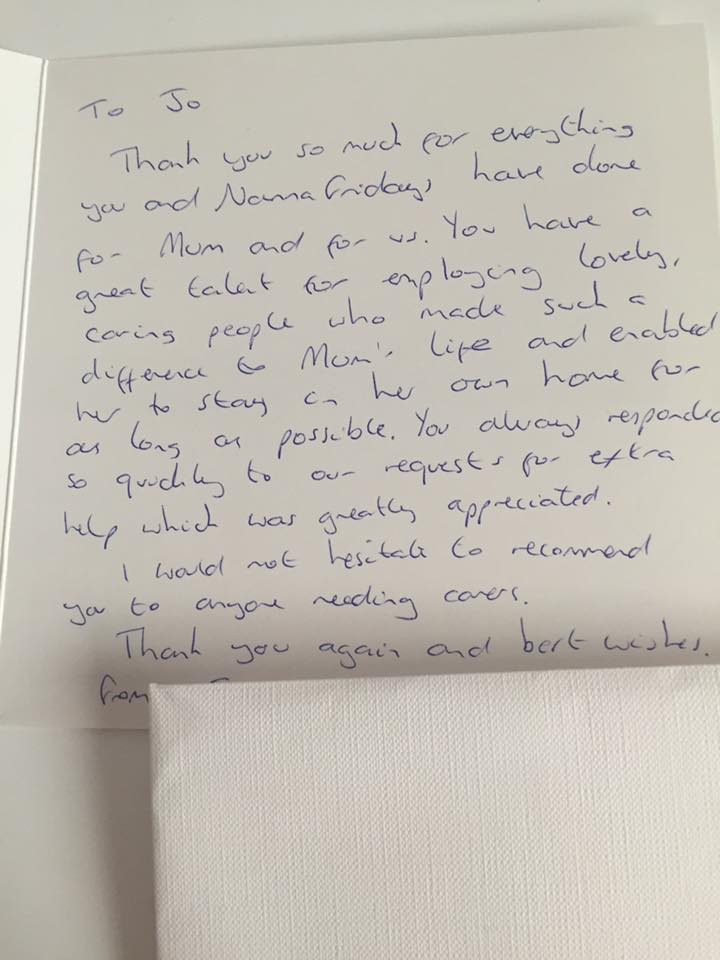 To Jo
Thank you so much for everything
you and Nanna Fridays have done
for Mum and for us. You have a
great talent for employing lovely,
caring people who made such a
difference to Mum's life and enabled
her to stay in her own home for
as long as possible. You always responded
so quickly to our requests for extra
help which was greatly appreciated.
I would not hesitate to recommend
you to anyone needing carers.
Thank you again and best wishes.
from